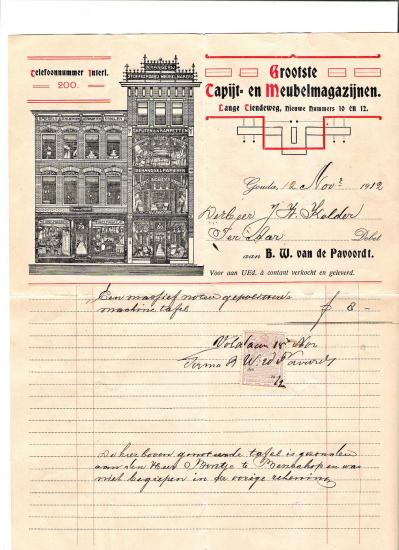 Telefoonnummer Interl.
200.
BEHANGERIJ
STOFFEERDERIJ MEUBELMAKERIJ
TAPIJTEN EN KARPETTEN
BEHANGSELPAPIEREN
Grootste
Tapijt- en Meubelmagazijnen.
Lange Tiendeweg, Nieuwe Nummers 10 en 12.
Gouda, 12 Novr 1912
De Heer J. H. Kelder
Ter Aar Debet
aan B. W. van de Pavoordt.
Voor aan UEd. à contant verkocht en geleverd.
Een massief noten gepolitoerde
machine tafel f 8 -
Voldaan 18 Nov
Firma B W vd Pavoordt
12
De hierboven genoemde tafel is gezonden
aan den Heer te Benschop en was
niet begrepen in de vorige rekening